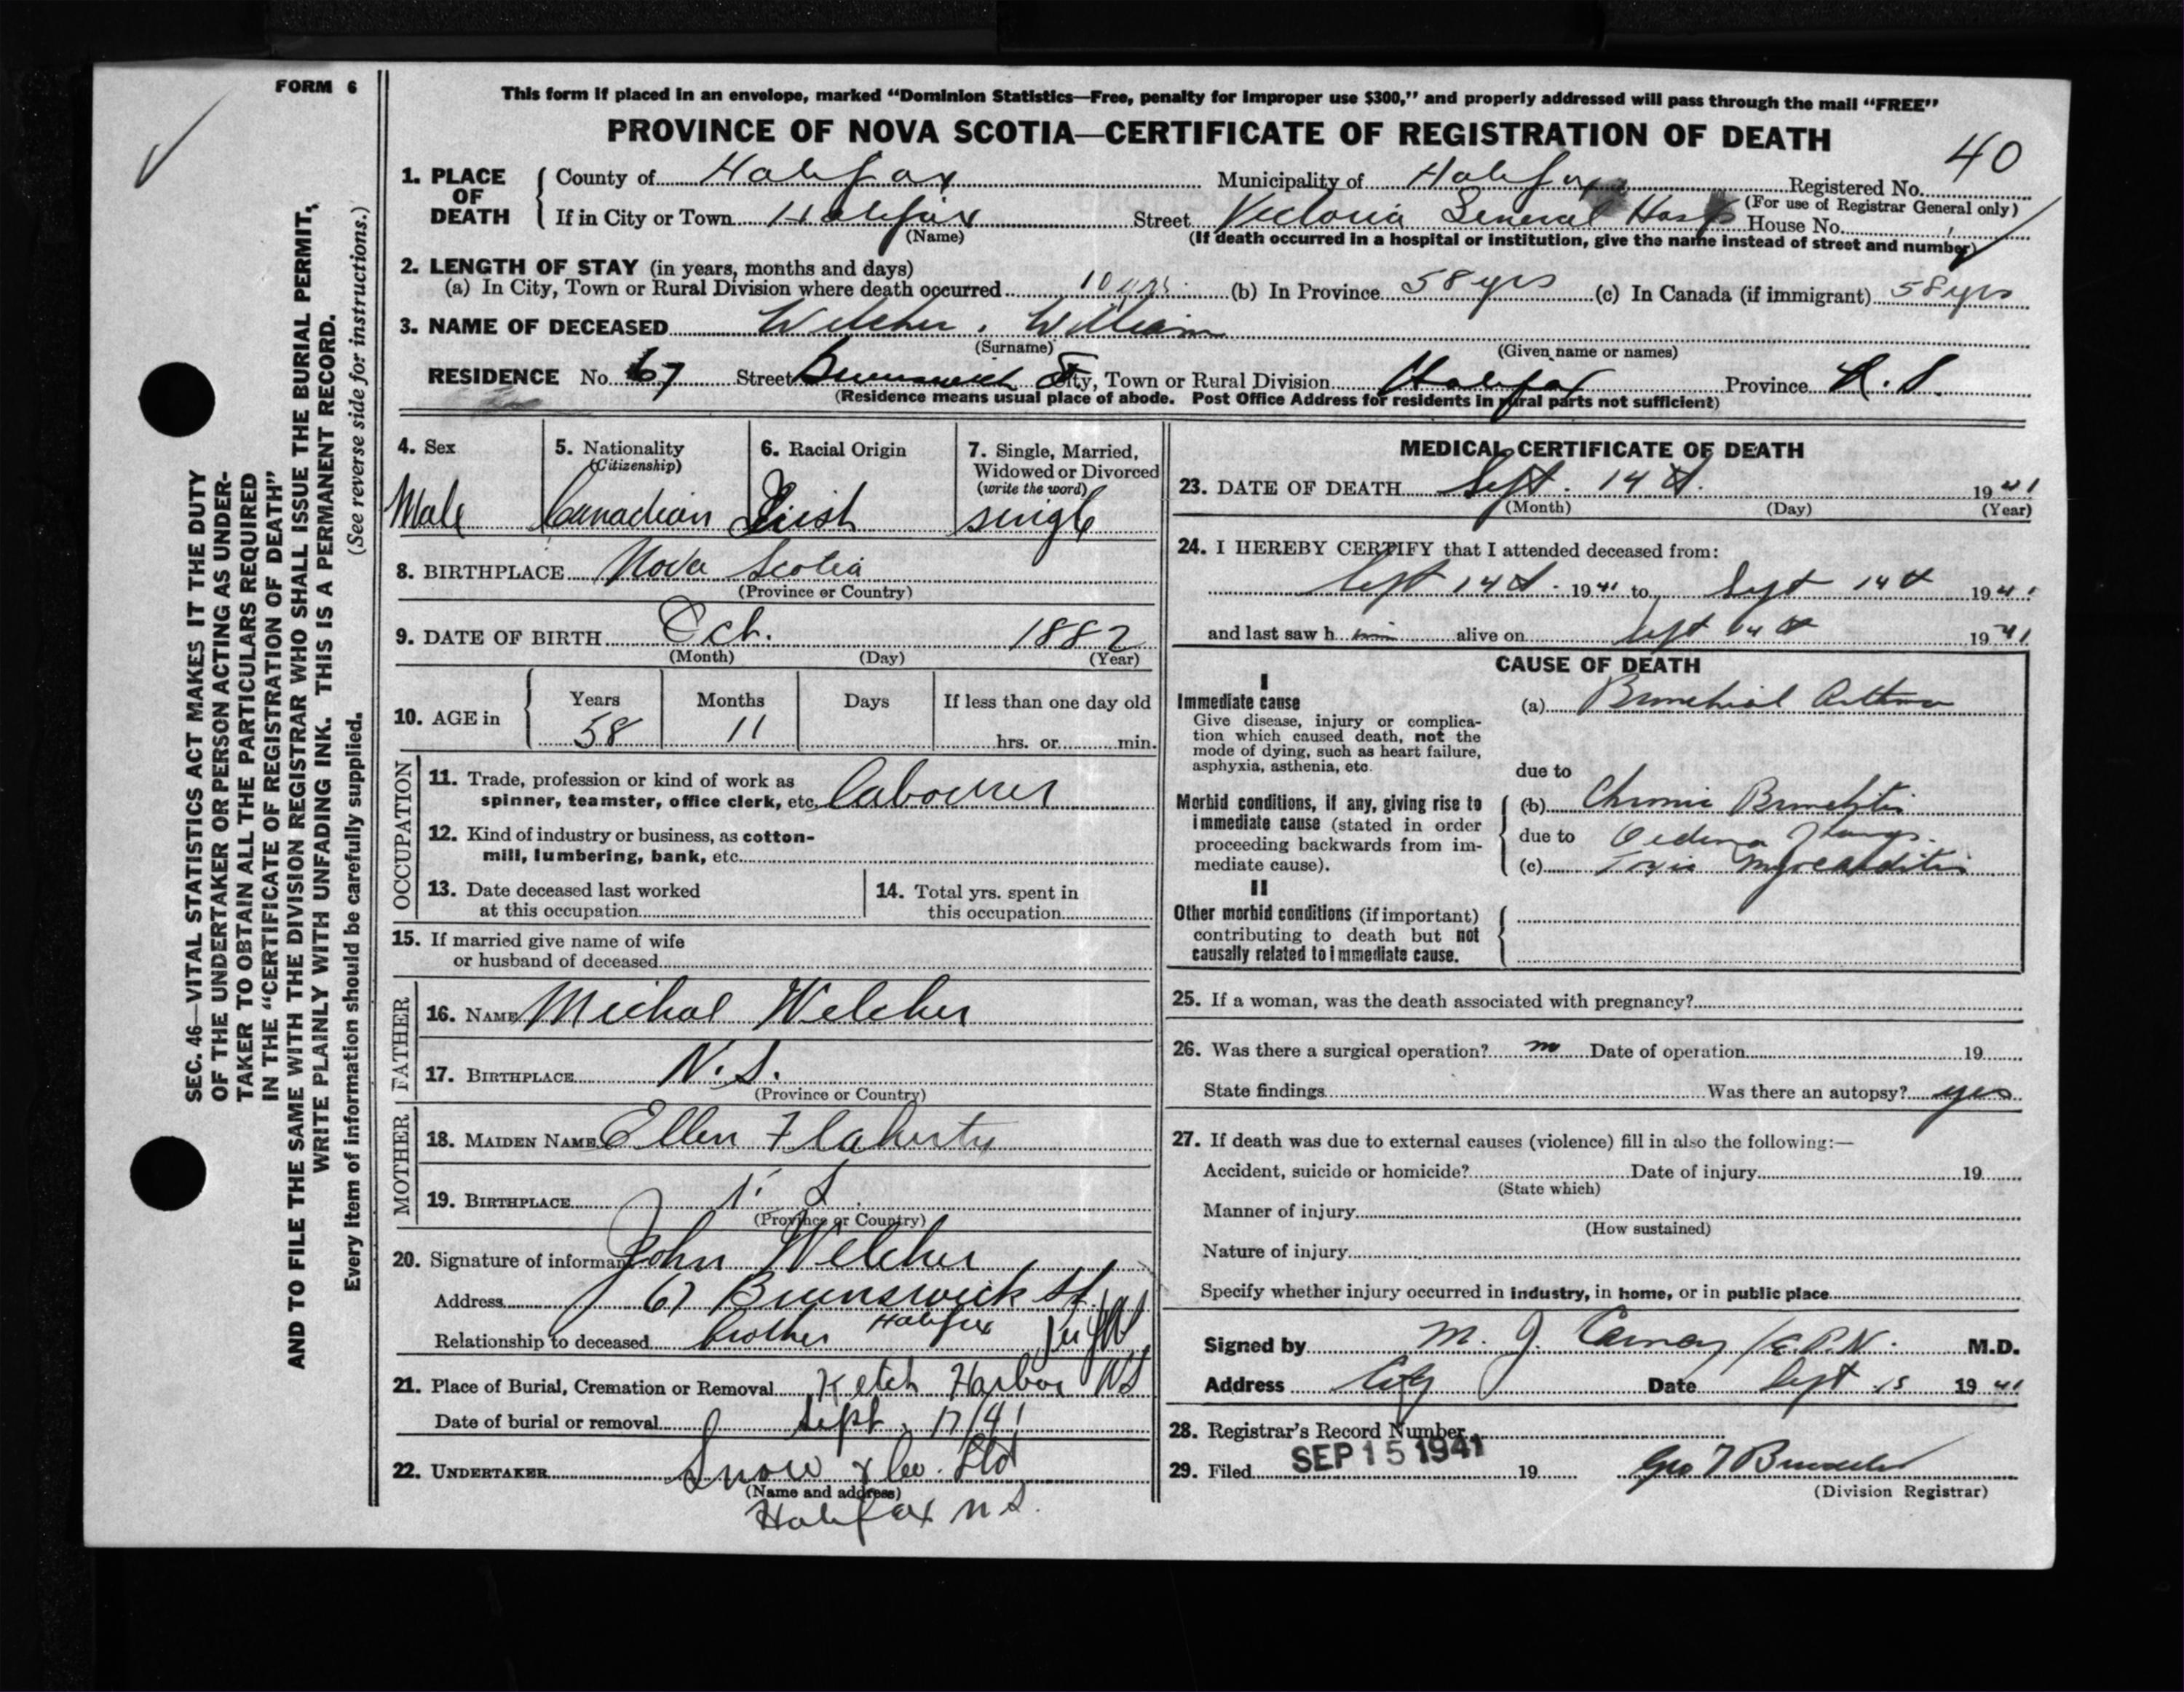 FORM 6
This form if placed in an envelope, marked "Dominion Statistics—Free, penalty for improper use $300," and properly addressed will pass through the mail "FREE"
PROVINCE OF NOVA SCOTIA—CERTIFICATE OF REGISTRATION OF DEATH
40
1. PLACE OF DEATH
County of Halifax Municipality of Halifax Registered No.
(For use of Registrar General only)
If in City or Town Halifax Street Victoria General Hosp House No.
(Name) (If death occurred in a hospital or institution, give the name instead of street and number)
2. LENGTH OF STAY (in years, months and days)
(a) In City, Town or Rural Division where death occurred 10 yrs. (b) In Province 58 yrs (c) In Canada (if immigrant) 58 yrs
3. NAME OF DECEASED Welcher, William
(Surname) (Given name or names)
RESIDENCE No. 67 Street Brunswick St City, Town or Rural Division Halifax Province N.S.
(Residence means usual place of abode. Post Office Address for residents in rural parts not sufficient)
SEC. 46—VITAL STATISTICS ACT MAKES IT THE DUTY
OF THE UNDERTAKER OR PERSON ACTING AS UNDER-
TAKER TO OBTAIN ALL THE PARTICULARS REQUIRED
IN THE "CERTIFICATE OF REGISTRATION OF DEATH"
AND TO FILE THE SAME WITH THE DIVISION REGISTRAR WHO SHALL ISSUE THE BURIAL PERMIT.
WRITE PLAINLY WITH UNFADING INK. THIS IS A PERMANENT RECORD.
Every item of information should be carefully supplied. (See reverse side for instructions.)
4. Sex
Male
5. Nationality
(Citizenship)
Canadian
6. Racial Origin
Irish
7. Single, Married,
Widowed or Divorced
(write the word)
single
8. BIRTHPLACE Nova Scotia
(Province or Country)
9. DATE OF BIRTH Oct. 1882
(Month) (Day) (Year)
10. AGE in
Years Months Days If less than one day old
58 11 hrs. or min.
OCCUPATION
11. Trade, profession or kind of work as
spinner, teamster, office clerk, etc. labourer
12. Kind of industry or business, as cotton-
mill, lumbering, bank, etc.
13. Date deceased last worked
at this occupation
14. Total yrs. spent in
this occupation
15. If married give name of wife
or husband of deceased
FATHER
16. NAME Michal Welcher
17. BIRTHPLACE N.S.
(Province or Country)
MOTHER
18. MAIDEN NAME Ellen Flaherty
19. BIRTHPLACE N. S.
(Province or Country)
20. Signature of informant John Welcher
Address 67 Brunswick St.
Halifax
Relationship to deceased brother
21. Place of Burial, Cremation or Removal Ketch Harbor NS
Date of burial or removal Sept. 17/41
22. UNDERTAKER Snow & Co. Ltd
(Name and address)
Halifax N.S.
MEDICAL CERTIFICATE OF DEATH
23. DATE OF DEATH Sept. 14th 1941
(Month) (Day) (Year)
24. I HEREBY CERTIFY that I attended deceased from:
Sept 14th 1941 to Sept 14th 1941
and last saw him alive on Sept 14th 1941
CAUSE OF DEATH
I
Immediate cause
Give disease, injury or complica-
tion which caused death, not the
mode of dying, such as heart failure,
asphyxia, asthenia, etc.
(a) Bronchial Asthma
due to
Morbid conditions, if any, giving rise to
immediate cause (stated in order
proceeding backwards from im-
mediate cause).
(b) Chronic Bronchitis
due to Oedema of lungs.
(c) Toxic Myocarditis
II
Other morbid conditions (if important)
contributing to death but not
causally related to immediate cause.
25. If a woman, was the death associated with pregnancy?
26. Was there a surgical operation? no Date of operation 19
State findings Was there an autopsy? yes
27. If death was due to external causes (violence) fill in also the following:—
Accident, suicide or homicide? Date of injury 19
(State which)
Manner of injury
(How sustained)
Nature of injury
Specify whether injury occurred in industry, in home, or in public place
Signed by M. J. Carney /E.P.N. M.D.
Address City Date Sept 15 1941
28. Registrar's Record Number
29. Filed SEP 15 1941 19
(Division Registrar)